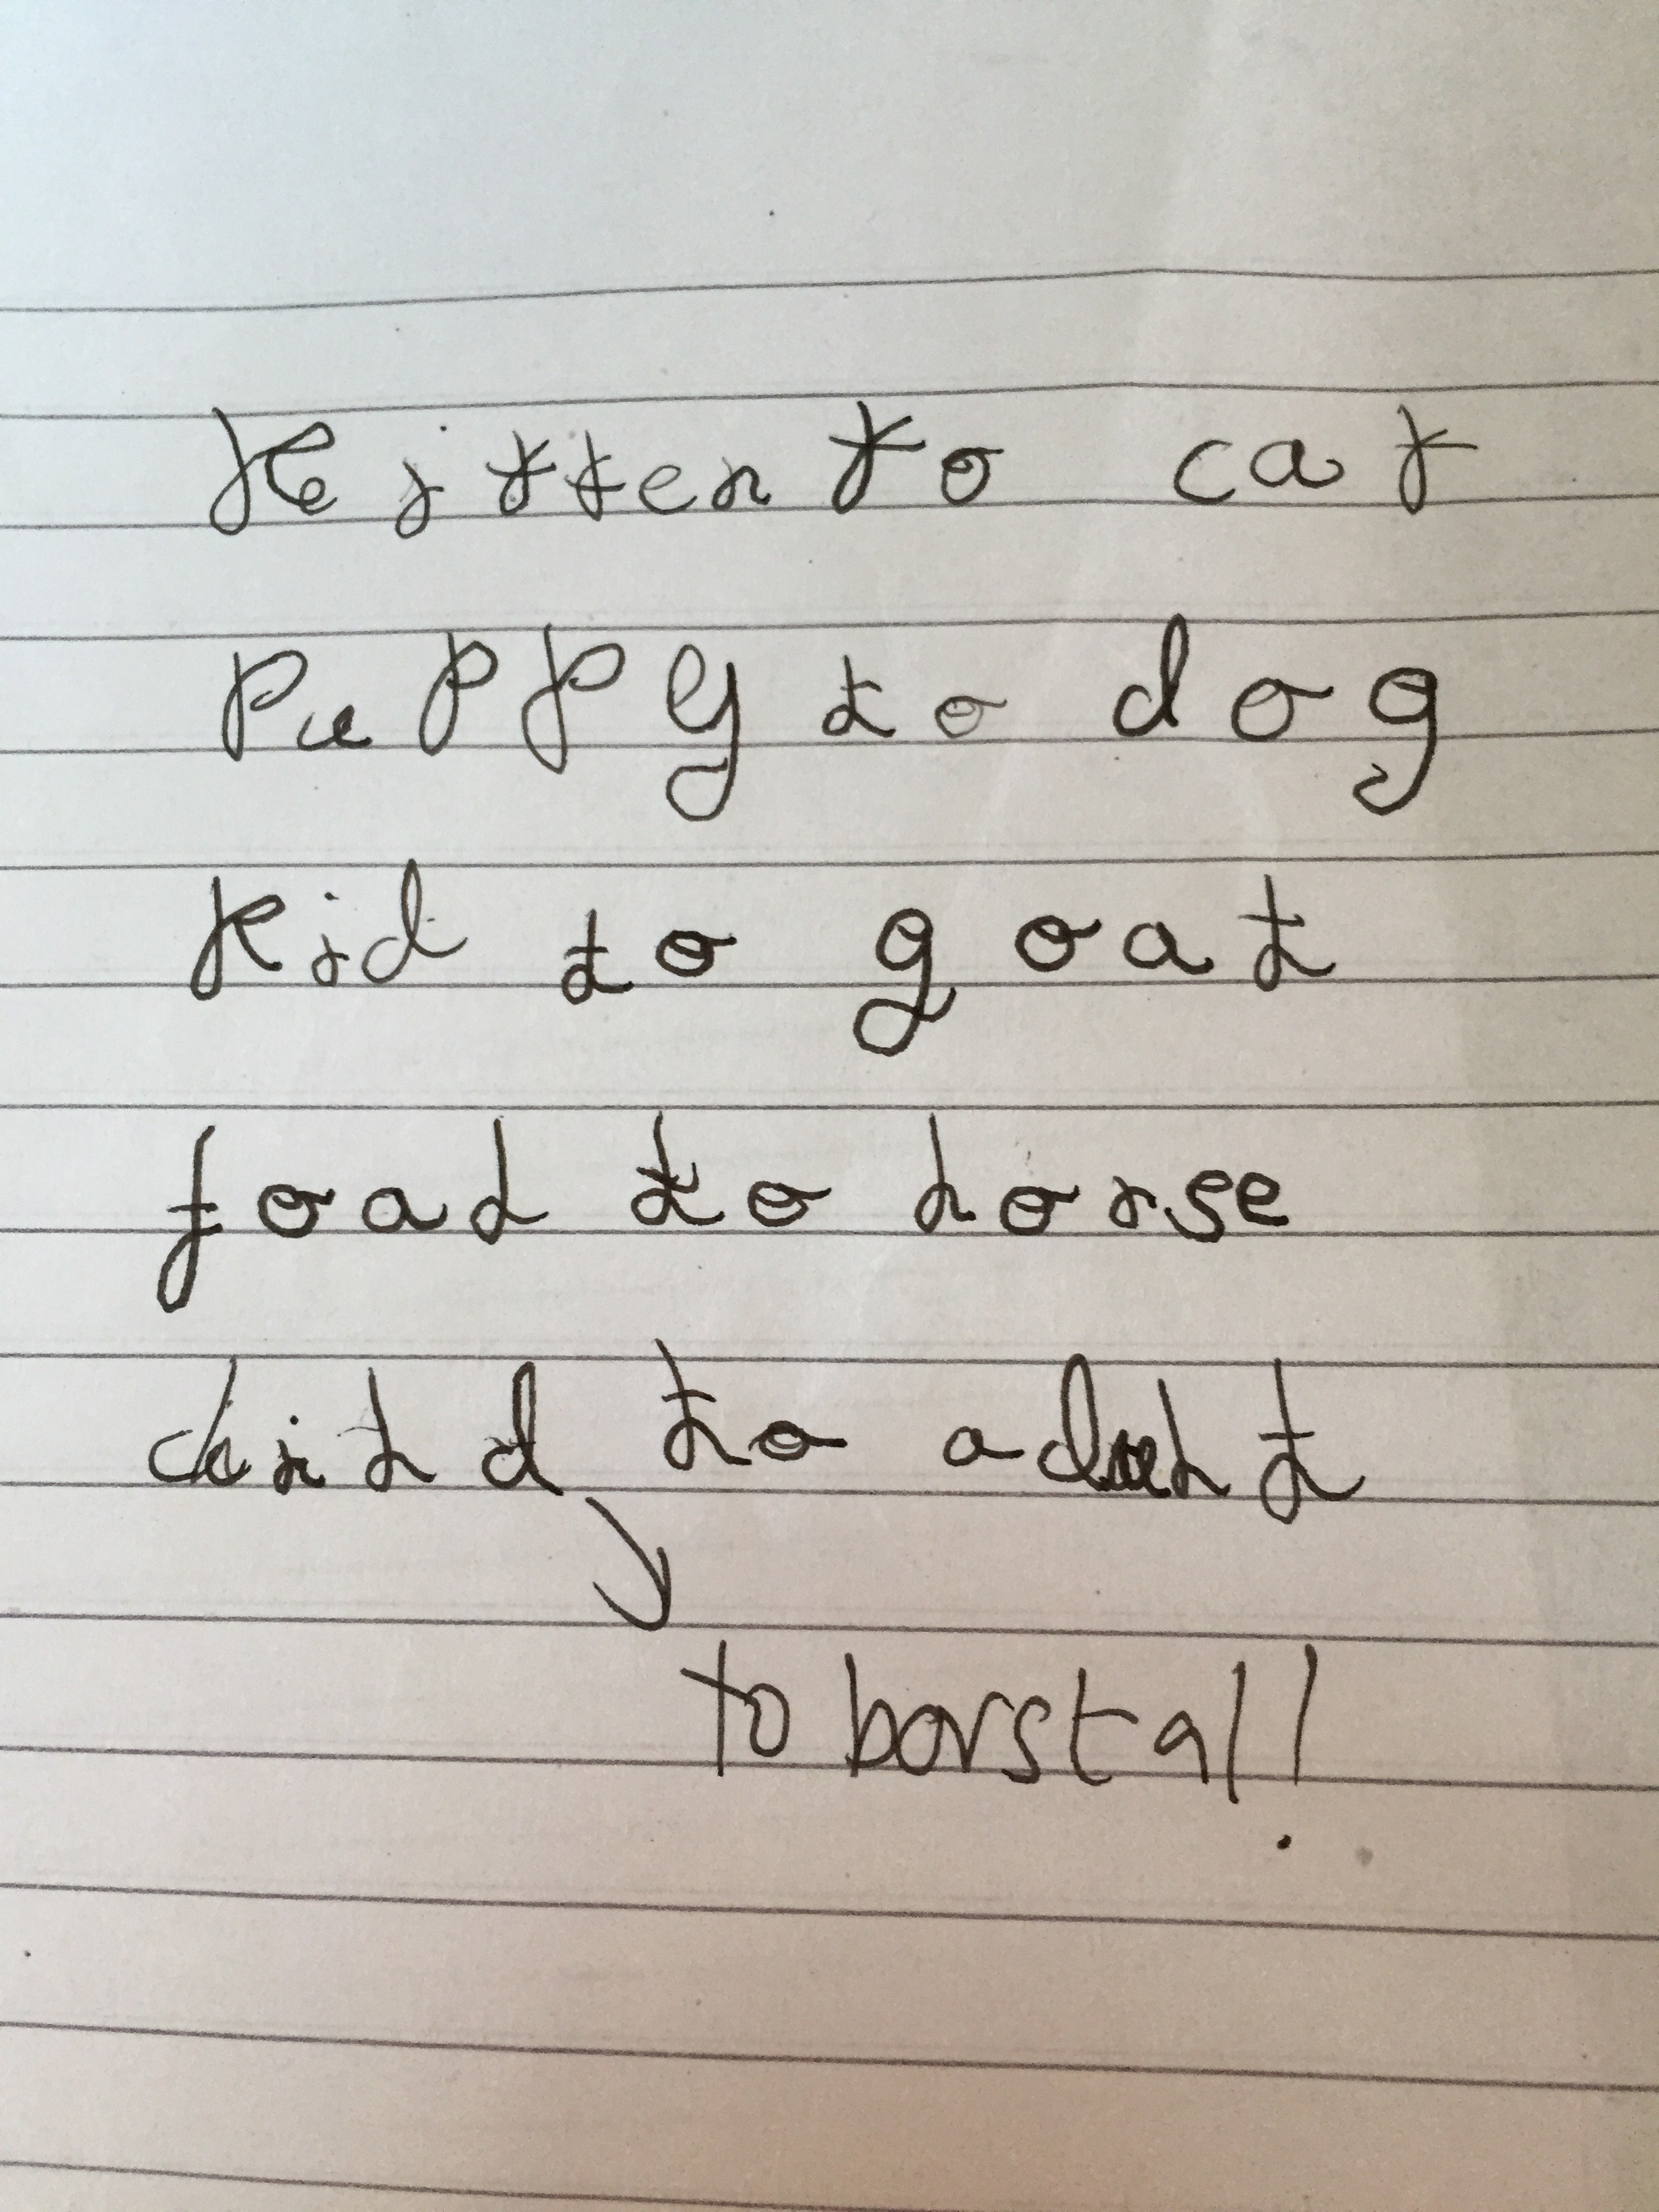 Kitten to cat
Puppy to dog
Kid to goat
foal to horse
child to adult
to borstal!